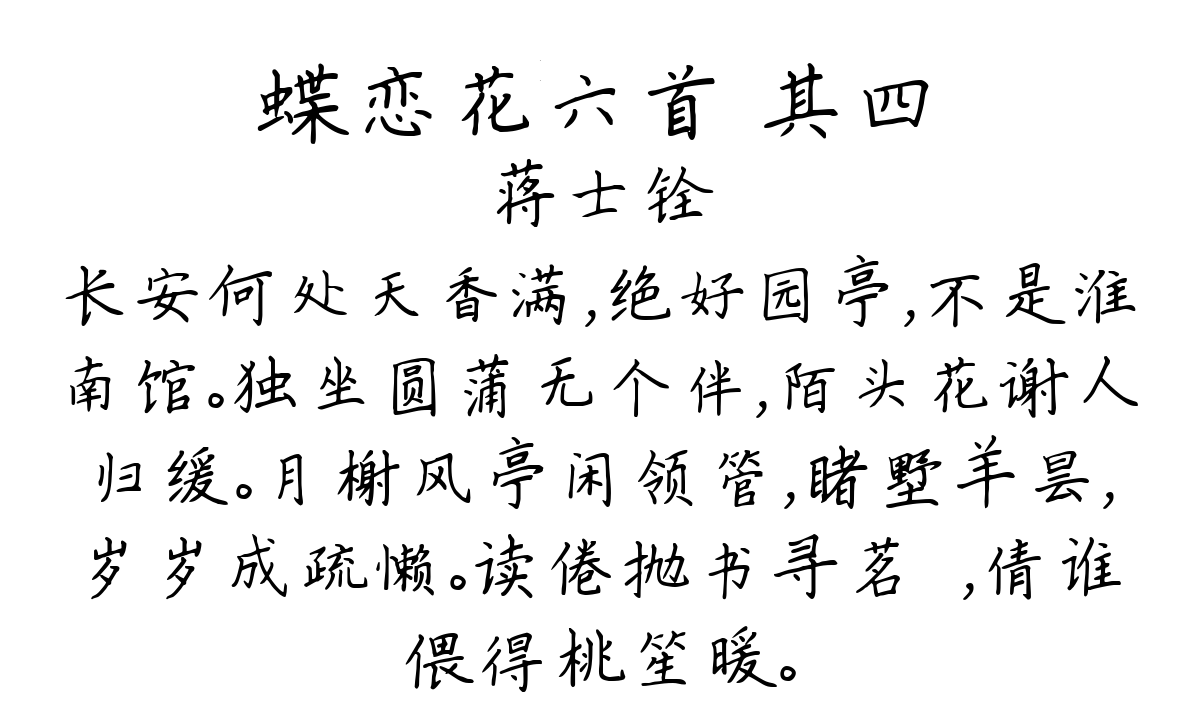 蝶恋花六首 其四
蒋士铨
长安何处天香满,绝好园亭,不是淮
南馆。独坐圆蒲无个伴,陌头花谢人
归缓。月榭风亭闲领管,睹墅羊昙,
岁岁成疏懒。读倦抛书寻茗 ,倩谁
偎得桃笙暖。